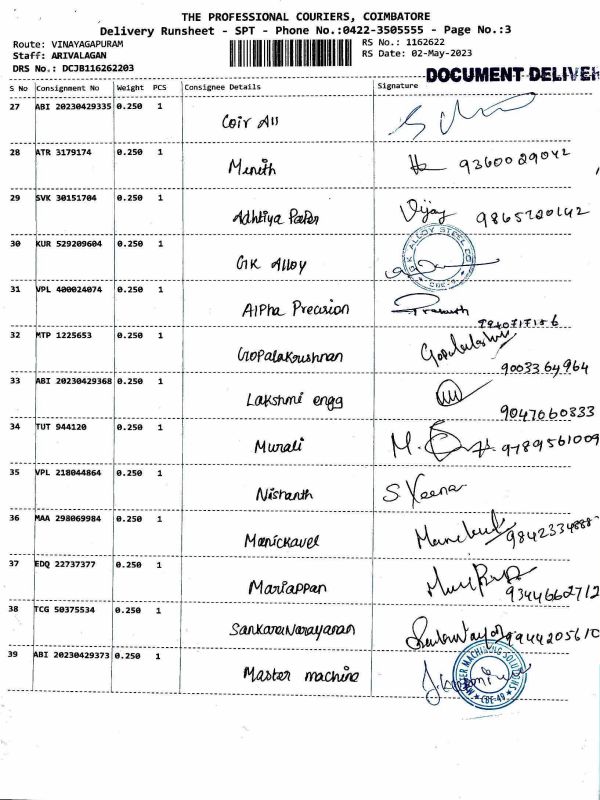 THE PROFESSIONAL COURIERS, COIMBATORE
Delivery Runsheet - SPT - Phone No.:0422-3505555 - Page No.:3
Route: VINAYAGAPURAM RS No.: 1162622
Staff: ARIVALAGAN RS Date: 02-May-2023
DRS No.: DCJB116262203
DOCUMENT DELIVER
S No Consignment No Weight PCS Consignee Details Signature
27 ABI 20230429335 0.250 1 Coir All
28 ATR 3179174 0.250 1 Menith 9360029042
29 SVK 30151704 0.250 1 Adhtiya Paper Vijay 9865720142
30 KUR 529209604 0.250 1 GK Alloy
G.K ALLOY STEEL CO
CBE-4
31 VPL 400024074 0.250 1 Alpha Precision Prasanth
32 MTP 1225653 0.250 1 Gopalakrushnan Gopalakrishnan
9003364964
33 ABI 20230429368 0.250 1 Lakshmi engg
9047660333
34 TUT 944120 0.250 1 Murali 9789561009
35 VPL 218044864 0.250 1 Nishanth S. Veena
36 MAA 298069984 0.250 1 Manickavel 9842334888
37 EDQ 22737377 0.250 1 Mariappan
9344662712
38 TCG 50375534 0.250 1 SankaraNarayanan 9944205610
39 ABI 20230429373 0.250 1 Master machine
MASTER MACHINING SOLUTIONS
CBE-49